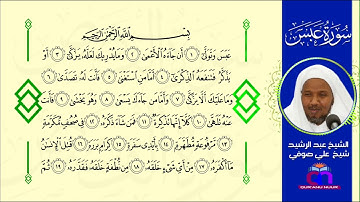 بِسْمِ اللَّهِ الرَّحْمَٰنِ الرَّحِيمِ
عَبَسَ وَتَوَلَّىٰ ١ أَن جَاءَهُ الْأَعْمَىٰ ٢ وَمَا يُدْرِيكَ لَعَلَّهُ يَزَّكَّىٰ ٣ أَوْ
يَذَّكَّرُ فَتَنفَعَهُ الذِّكْرَىٰ ٤ أَمَّا مَنِ اسْتَغْنَىٰ ٥ فَأَنتَ لَهُ تَصَدَّىٰ ٦
وَمَا عَلَيْكَ أَلَّا يَزَّكَّىٰ ٧ وَأَمَّا مَن جَاءَكَ يَسْعَىٰ ٨ وَهُوَ يَخْشَىٰ ٩ فَأَنتَ
عَنْهُ تَلَهَّىٰ ١٠ كَلَّا إِنَّهَا تَذْكِرَةٌ ١١ فَمَن شَاءَ ذَكَرَهُ ١٢ فِي صُحُفٍ مُّكَرَّمَةٍ
١٣ مَّرْفُوعَةٍ مُّطَهَّرَةٍ ١٤ بِأَيْدِي سَفَرَةٍ ١٥ كِرَامٍ بَرَرَةٍ ١٦ قُتِلَ الْإِنسَانُ
مَا أَكْفَرَهُ ١٧ مِنْ أَيِّ شَيْءٍ خَلَقَهُ ١٨ مِن نُّطْفَةٍ خَلَقَهُ فَقَدَّرَهُ ١٩ ثُمَّ
سورة عبس
الشيخ عبد الرشيد
شيخ علي صوفي
QUR'ANU NUUR